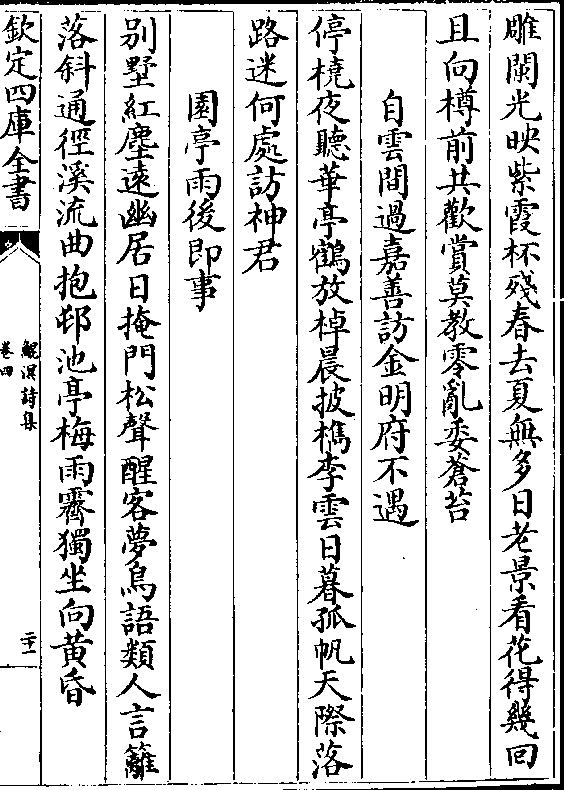 雕闌光映紫霞杯殘春去夏無多日老景看花得幾回
且向樽前共歡賞莫教零亂委蒼苔
自雲間過嘉善訪金明府不遇
停橈夜聽華亭鶴放棹晨披檇李雲日暮孤帆天際落
路迷何處訪神君
園亭雨後即事
别墅紅塵遠幽居日掩門松聲醒客夢鳥語類人言籬
落斜通徑溪流曲抱邨池亭梅雨霽獨坐向黄昏
欽定四庫全書
鯤溟詩集
卷四
二十一